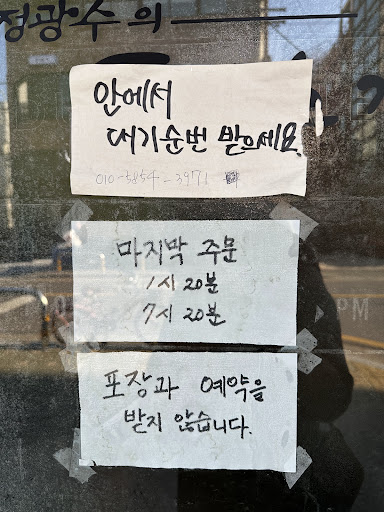 정광수의
안에서
대기순번 받으세요.
010-5854-3971
마지막 주문
1시 20분
7시 20분
PM
포장과 예약을
받지 않습니다.